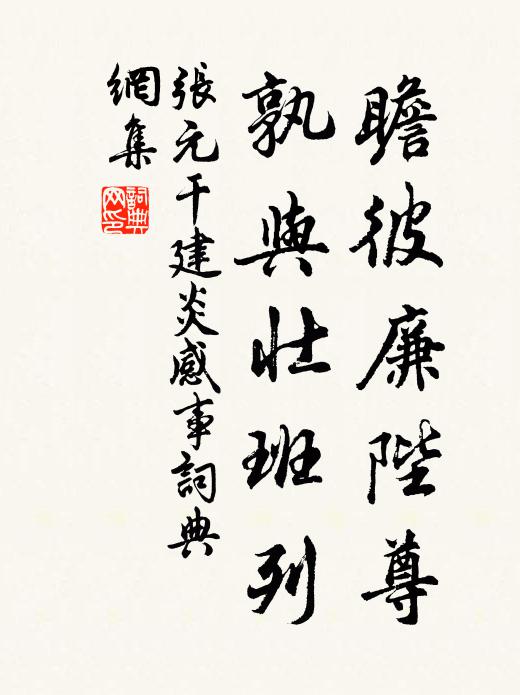 瞻彼廉陛尊
孰與壮班列
張元干建炎感事詞典
網集
詞典網印